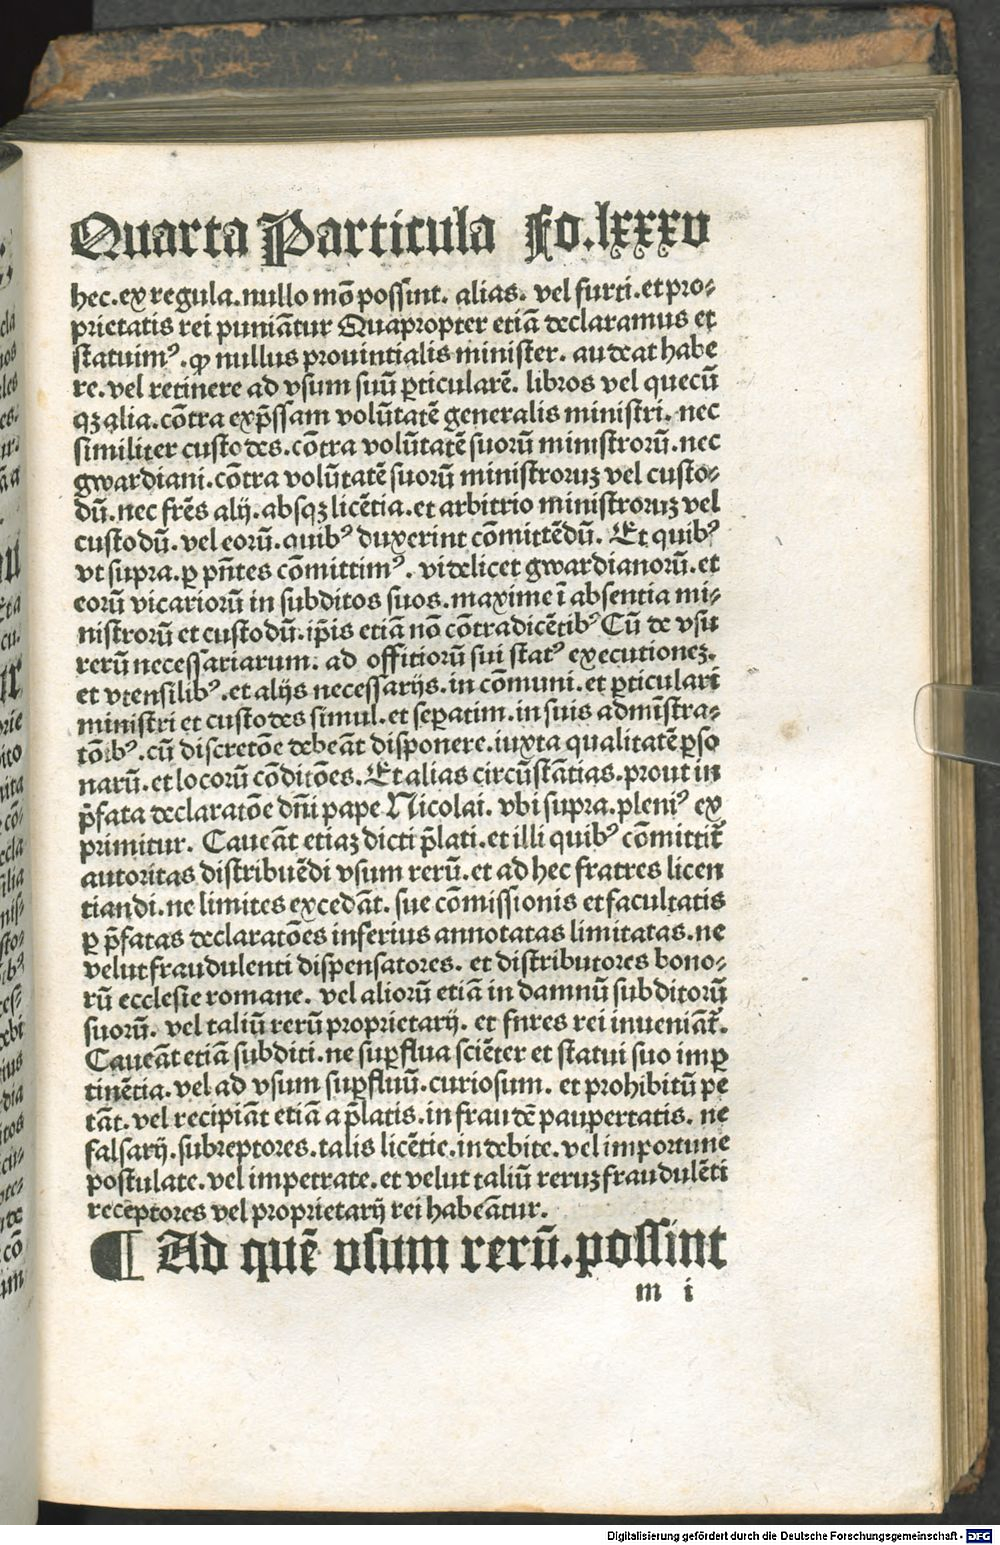 Quarta Particula Fo.lxxxv
hec.ex regula.nullo mō possint. alias. vel furti.et pro⸗
prietatis rei puniātur Quapropter etiā declaramus et
statuimꝰ.ꝙ nullus prouintialis minister. audeat habe
re.vel retinere ad vsum suū ꝑticularē. libros vel quecū
qꝫ alia.cōtra exp̄ssam volūtatē generalis ministri. nec
similiter custodes.cōtra volūtatē suorū ministrorū.nec
gwardiani.cōtra volūtatē suorū ministroruꝫ vel custo⸗
dū.nec frēs alij.absqꝫ licētia.et arbitrio ministroruꝫ vel
custodū.vel eorū.quibꝰ duxerint cōmittēdū. Et quibꝰ
vt supra.ꝑ pn̄tes cōmittimꝰ. videlicet gwardianorū.et
eorū vicariorū in subditos suos.maxime ī absentia mi⸗
nistrorū et custodū.ip̄is etiā nō cōtradicētibꝰ Cū de vsu
rerū necessariarum. ad offitiorū sui statꝰ executioneꝫ.
et vtensilibꝰ.et alijs necessarijs.in cōmuni.et ꝑticulari
ministri et custodes simul.et seꝑatim.in suis admīstra⸗
tōibꝰ.cū discretōe debeāt disponere.iuxta qualitatē ꝑso
narū.et locorū cōditōes.Et alias circūstātias.prout in
p̄fata declaratōe dn̄i pape Nicolai. vbi supra.pleniꝰ ex
primitur. Caueāt etiaꝫ dicti p̄lati.et illi quibꝰ cōmittit᷑
autoritas distribuēdi vsum rerū.et ad hec fratres licen
tiandi.ne limites excedāt. sue cōmissionis et facultatis
ꝑ p̄fatas declaratōes inferius annotatas limitatas.ne
velut fraudulenti dispensatores. et distributores bono⸗
rū ecclesie romane. vel aliorū etiā in damnū subditorū
suorū. vel taliū rerū proprietarij. et fures rei inueniāt᷑.
Caueāt etiā subditi.ne suꝑflua sciēter et statui suo imꝑ
tinētia.vel ad vsum suꝑfluū.curiosum. et prohibitū pe
tāt.vel recipiāt etiā a p̄latis.in fraudē paupertatis. ne
falsarij.subreptores.talis licētie.indebite.vel importune
postulate.vel impetrate.et velut taliū reruꝫ fraudulēti
receptores vel proprietarij rei habeātur.
¶ Ad quē vsum rerū.possint
m i
Digitalisierung gefördert durch die Deutsche Forschungsgemeinschaft - DFG